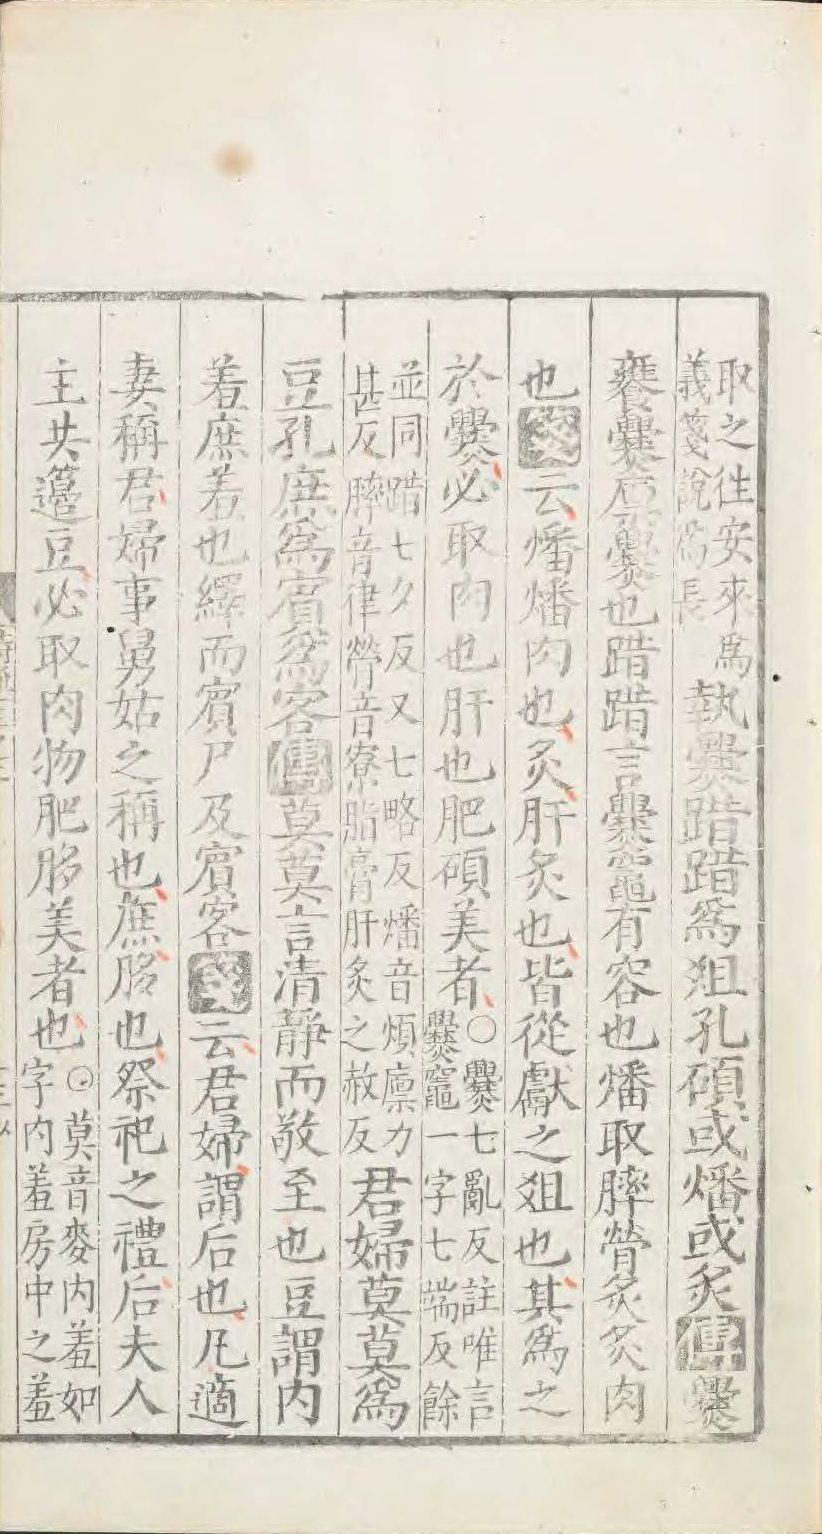 取之往安來爲義箋說爲長 執爨踖踖爲俎孔碩或燔或炙傳爨
饔爨廩爨也踖踖言爨竈有容也燔取膟膋炙炙肉
也箋云燔燔肉也炙肝炙也皆從獻之俎也其爲之
於爨必取肉也肝也肥碩美者○爨七亂反註唯言爨竈一字七端反餘
並同踖七夕反又七略反燔音煩廩力甚反膟音律膋音寮脂膏肝炙之赦反君婦莫莫爲
豆孔庶爲賓爲客傳莫莫言清靜而敬至也豆謂內
羞庶羞也繹而賓尸及賓客箋云君婦謂后也凡適
妻稱君婦事舅姑之稱也庶䏧也祭祀之禮后夫人
主共籩豆必取肉物肥䏧美者也○莫音麥內羞如字內羞房中之羞